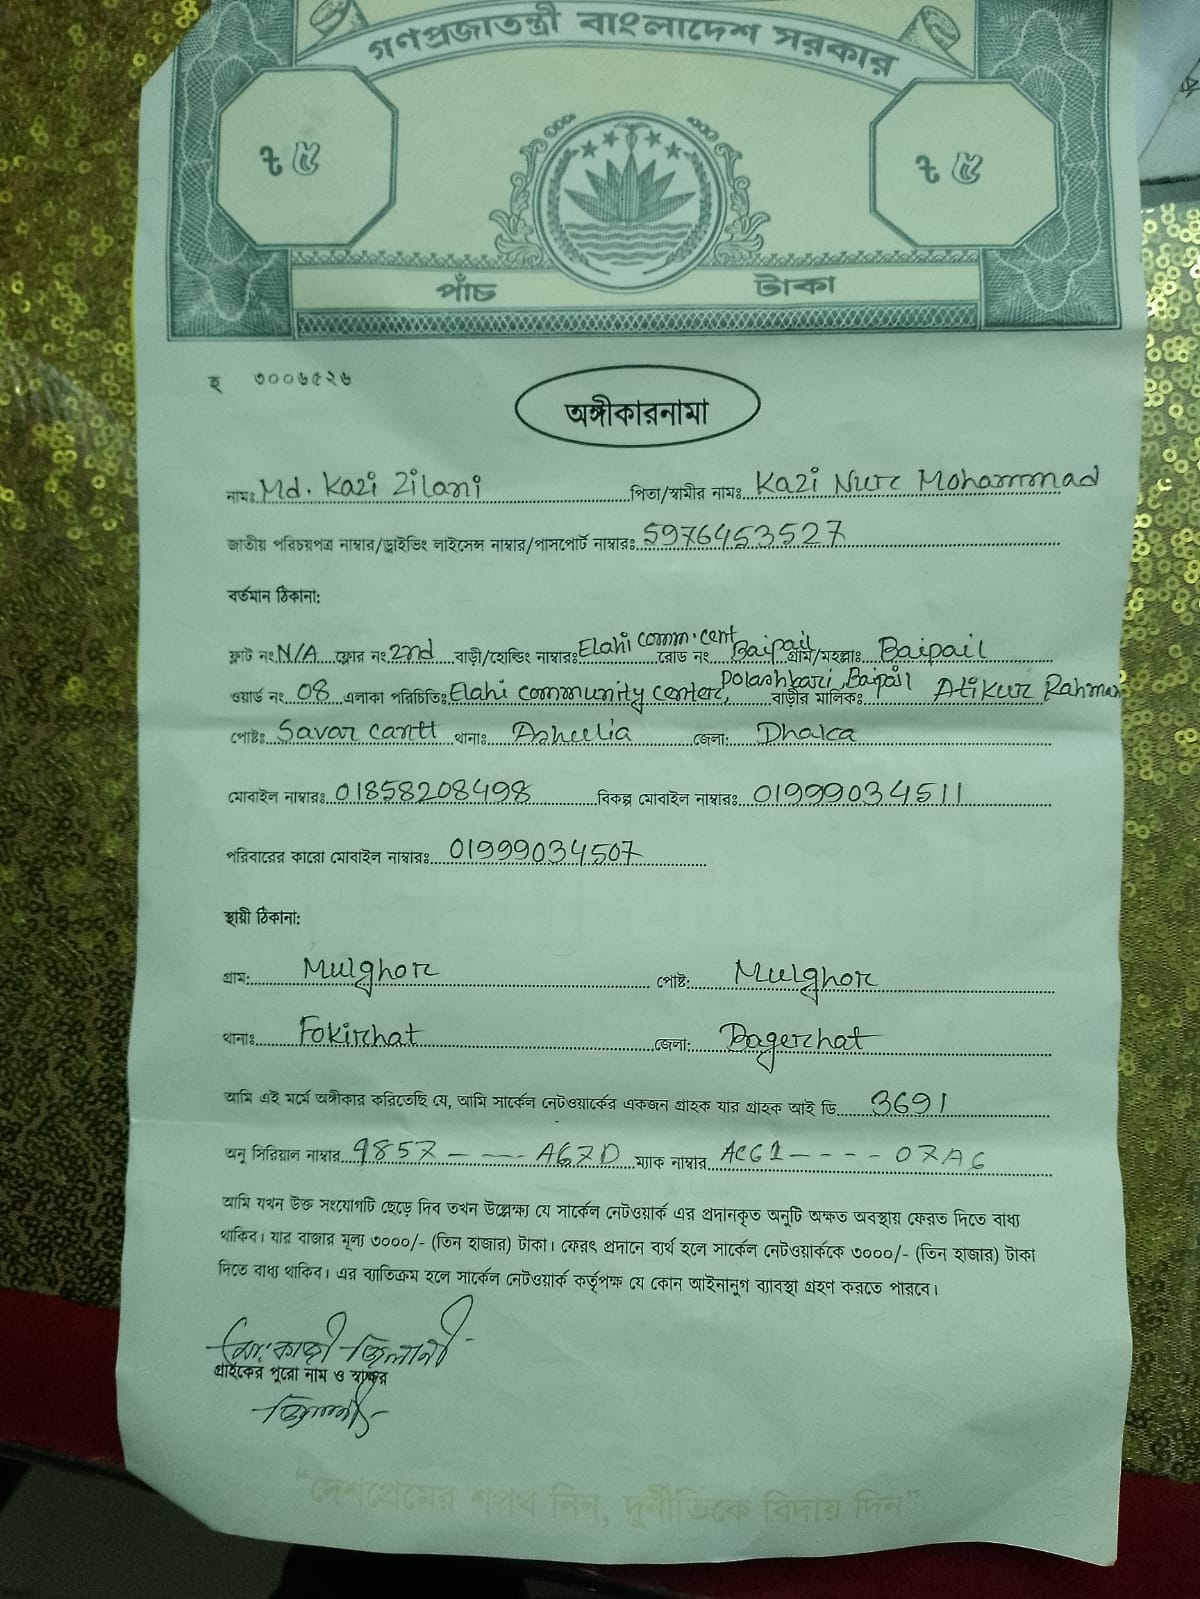 গণপ্রজাতন্ত্রী বাংলাদেশ সরকার
৳ ৫ ৳ ৫
পাঁচ টাকা
হ ৩০০৬৫২৬
অঙ্গীকারনামা
নামঃ Md. Kazi Zilani পিতা/স্বামীর নামঃ Kazi Nur Mohammad
জাতীয় পরিচয়পত্র নাম্বার/ড্রাইভিং লাইসেন্স নাম্বার/পাসপোর্ট নাম্বারঃ 5976453527
বর্তমান ঠিকানা:
ফ্লাট নং N/A ফ্লোর নং 2nd বাড়ী/হোল্ডিং নাম্বারঃ Elahi comm. cent রোড নং Baipail গ্রাম/মহল্লাঃ Baipail
ওয়ার্ড নং 08 এলাকা পরিচিতিঃ Elahi community center, Polashbari, Baipail বাড়ীর মালিকঃ Atikur Rahman
পোষ্টঃ Savar cantt থানাঃ Ashulia জেলা: Dhaka
মোবাইল নাম্বারঃ 01858208498 বিকল্প মোবাইল নাম্বারঃ 01999034511
পরিবারের কারো মোবাইল নাম্বারঃ 01999034507
স্থায়ী ঠিকানা:
গ্রাম: Mulghor পোষ্ট: Mulghor
থানাঃ Fokirhat জেলা: Bagerhat
আমি এই মর্মে অঙ্গীকার করিতেছি যে, আমি সার্কেল নেটওয়ার্কের একজন গ্রাহক যার গ্রাহক আই ডি 3691
অনু সিরিয়াল নাম্বার 9857 - --- A67D ম্যাক নাম্বার AC61 - - - - 07A6
আমি যখন উক্ত সংযোগটি ছেড়ে দিব তখন উল্লেক্ষ্য যে সার্কেল নেটওয়ার্ক এর প্রদানকৃত অনুটি অক্ষত অবস্থায় ফেরত দিতে বাধ্য
থাকিব। যার বাজার মূল্য ৩০০০/- (তিন হাজার) টাকা। ফেরৎ প্রদানে ব্যর্থ হলে সার্কেল নেটওয়ার্ককে ৩০০০/- (তিন হাজার) টাকা
দিতে বাধ্য থাকিব। এর ব্যাতিক্রম হলে সার্কেল নেটওয়ার্ক কর্তৃপক্ষ যে কোন আইনানুগ ব্যাবস্থা গ্রহণ করতে পারবে।
মোঃ কাজী জিলানী
গ্রাহকের পুরো নাম ও স্বাক্ষর
জিলানী
“দেশপ্রেমের শপথ নিন, দুর্নীতিকে বিদায় দিন”